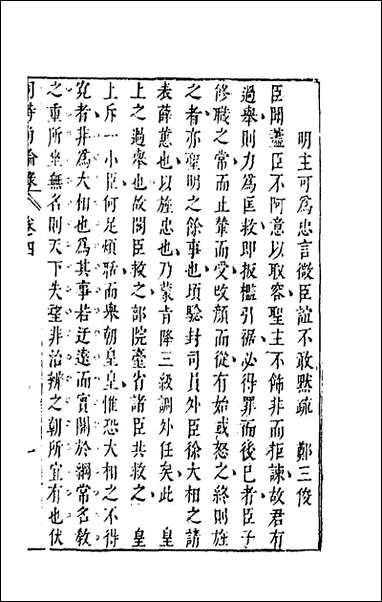 明主可爲忠言微臣誼不敢默疏　鄭三俊
臣聞藎臣不阿意以取容聖主不飾非而拒諫故君有
過舉則力爲匡救即扳檻引裾必得罪而後已者臣子
修職之常而止輦而受改顏而從有始或怒之終則旌
之者亦聖明之餘事也頃驗封司員外臣徐大相之請
表薛蕙也以旌忠也乃蒙旨降三級調外任矣此　皇
上之過舉也故閣臣救之部院臺省諸臣共救之　皇
上斥一小臣何足煩聒而舉朝皇皇惟恐大相之不得
寬者非爲大相也爲其事若迂遠而實關於綱常名教
之重所坐無名則天下失望非治辨之朝所宜有也伏
卷四
一